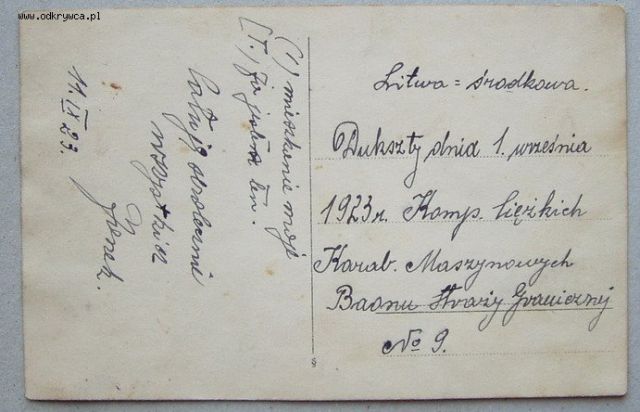 www.odkrywca.pl
(!) mieszkanie moje
[T.] Ja jestem ten.
Całuję osobiście
wszystkich
Franek.
11.IX 23.
Litwa = środkowa.
Dukszty dnia 1. września
1923 r. Komp. Ciężkich
Karab. Maszynowych
Baonu Straży Granicznej
No 9.